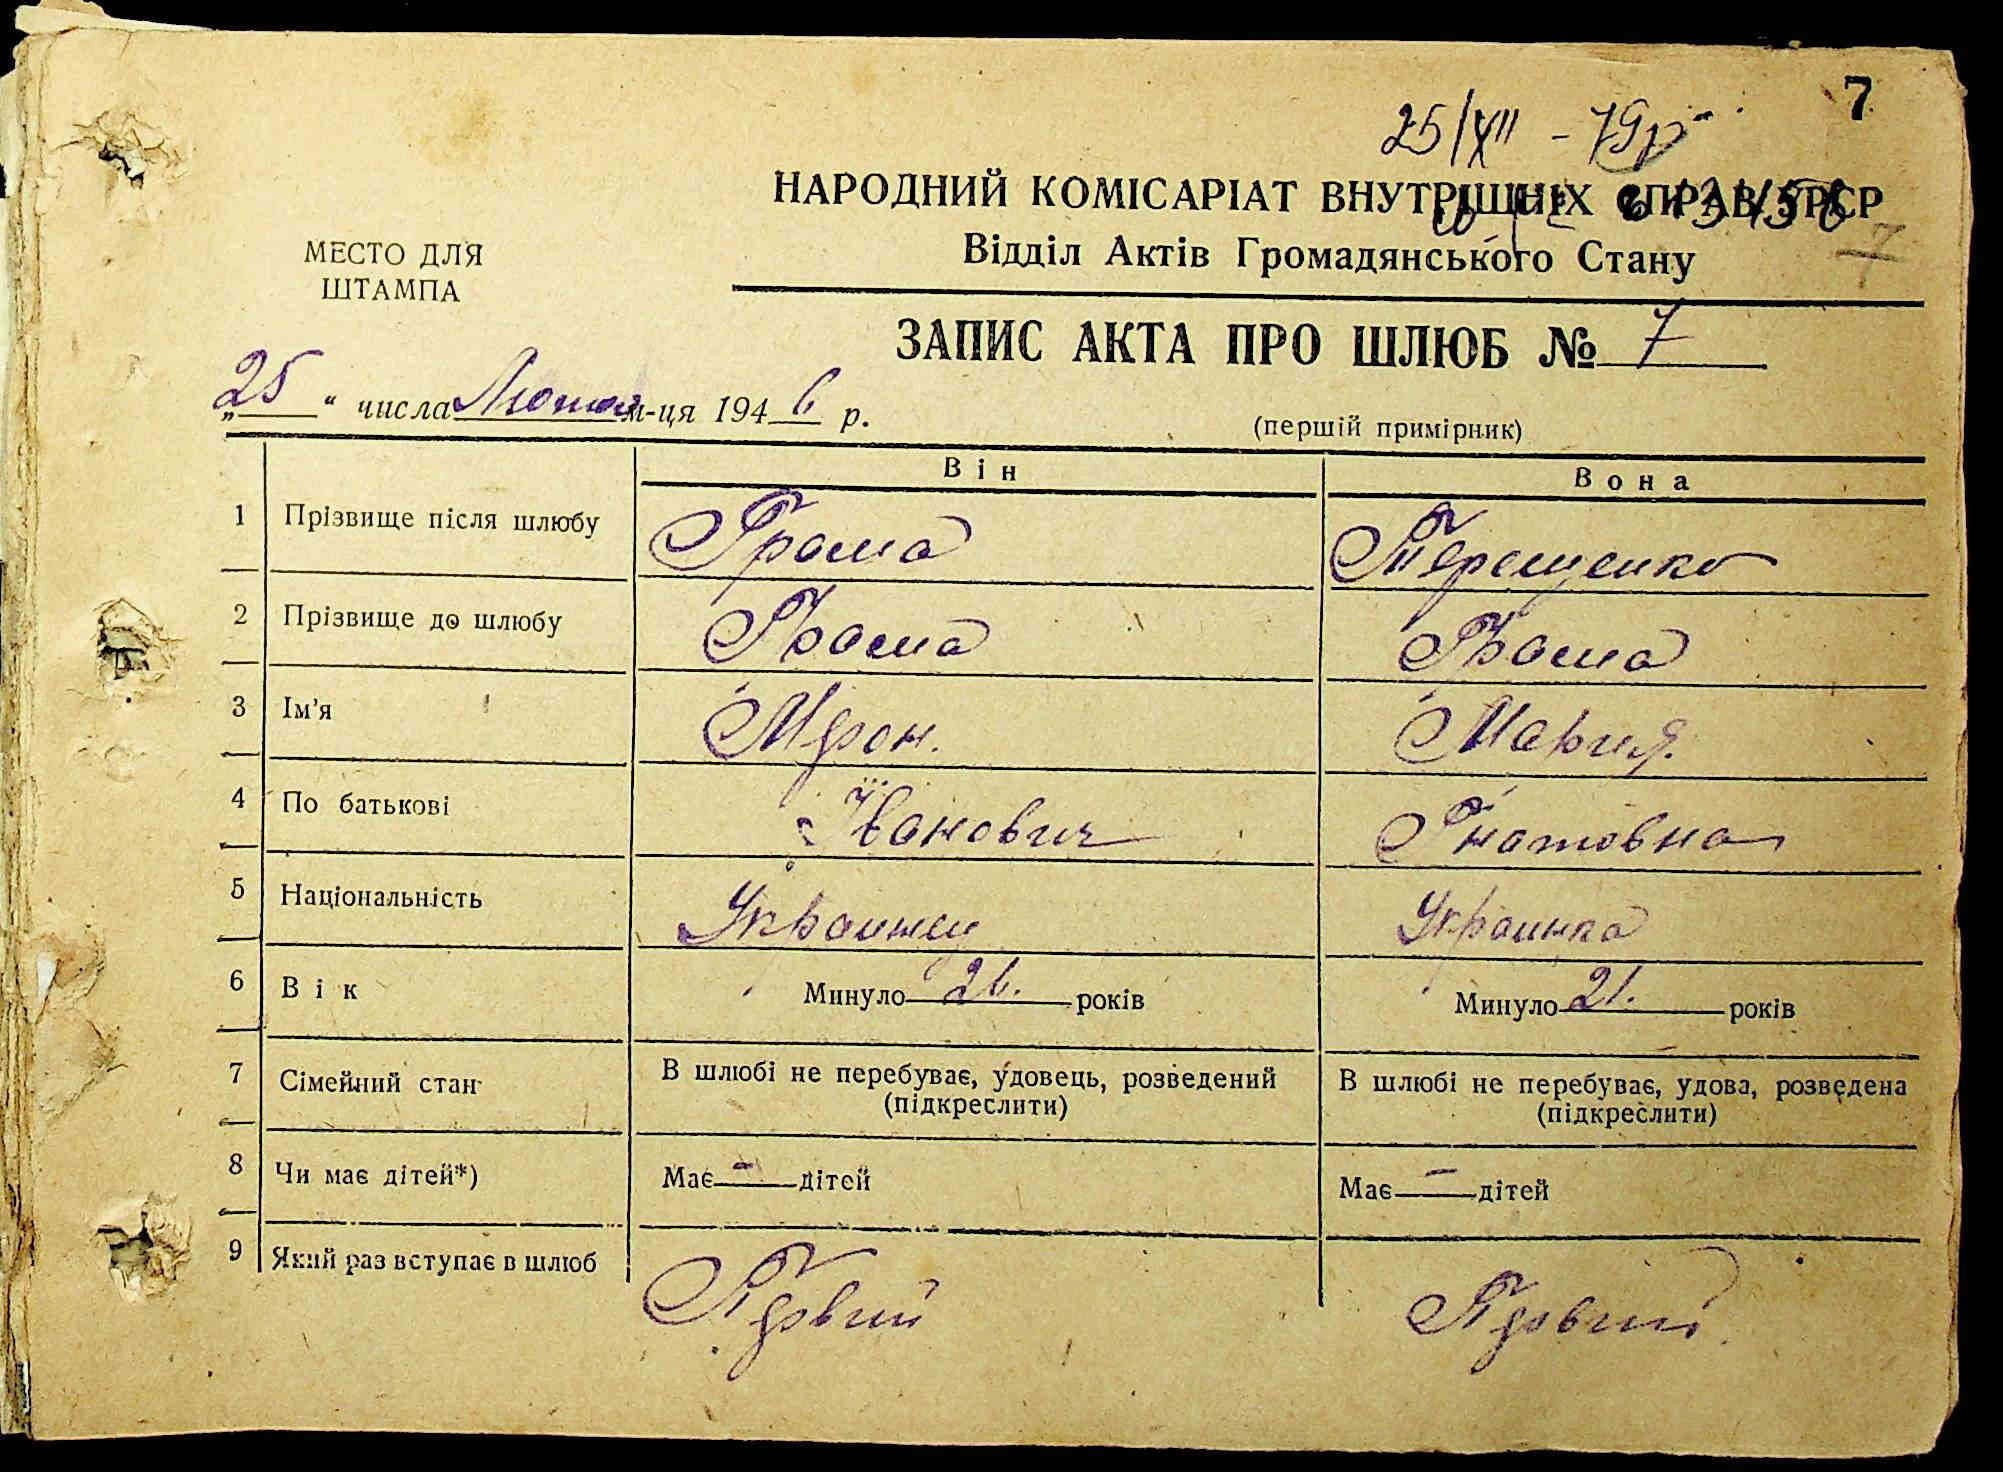 7
25/XII - 79р
НАРОДНИЙ КОМІСАРІАТ ВНУТРІШНІХ СПРАВ УРСР
Відділ Актів Громадянського Стану
7
МЕСТО ДЛЯ
ШТАМПА
ЗАПИС АКТА ПРО ШЛЮБ № 7
„25“ числа Лютого м-ця 1946 р.
(першій примірник)
Він Вона
1 Прізвище після шлюбу Грома Терещенко
2 Прізвище до шлюбу Грома Грома
3 Ім'я Мрон. Мария.
4 По батькові Іванович Гнатовна
5 Національність Украинец Украинка
6 Вік Минуло 26. років Минуло 21. років
7 Сімейний стан В шлюбі не перебуває, удовець, розведений (підкреслити) В шлюбі не перебуває, удова, розведена (підкреслити)
8 Чи має дітей*) Має - дітей Має - дітей
9 Який раз вступає в шлюб Первий Первий